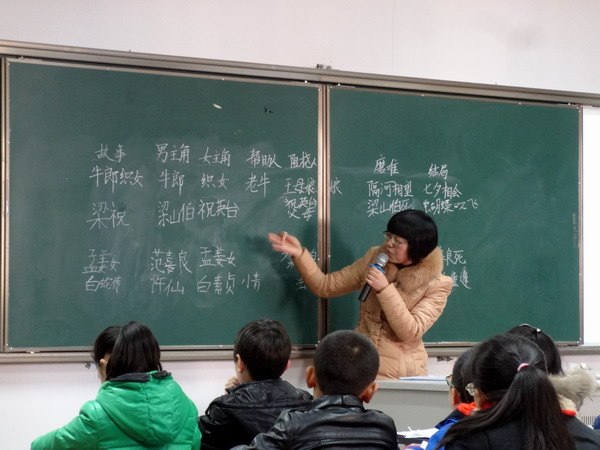 故事 男主角 女主角 帮助人 阻挠人 磨难 结局
牛郎织女 牛郎 织女 老牛 王母娘娘 隔河相望 七夕相会
梁祝 梁山伯 祝英台 祝英台父母 梁山伯死
孟姜女 范喜良 孟姜女 娘死
白蛇传 许仙 白素贞 小情 法 重逢